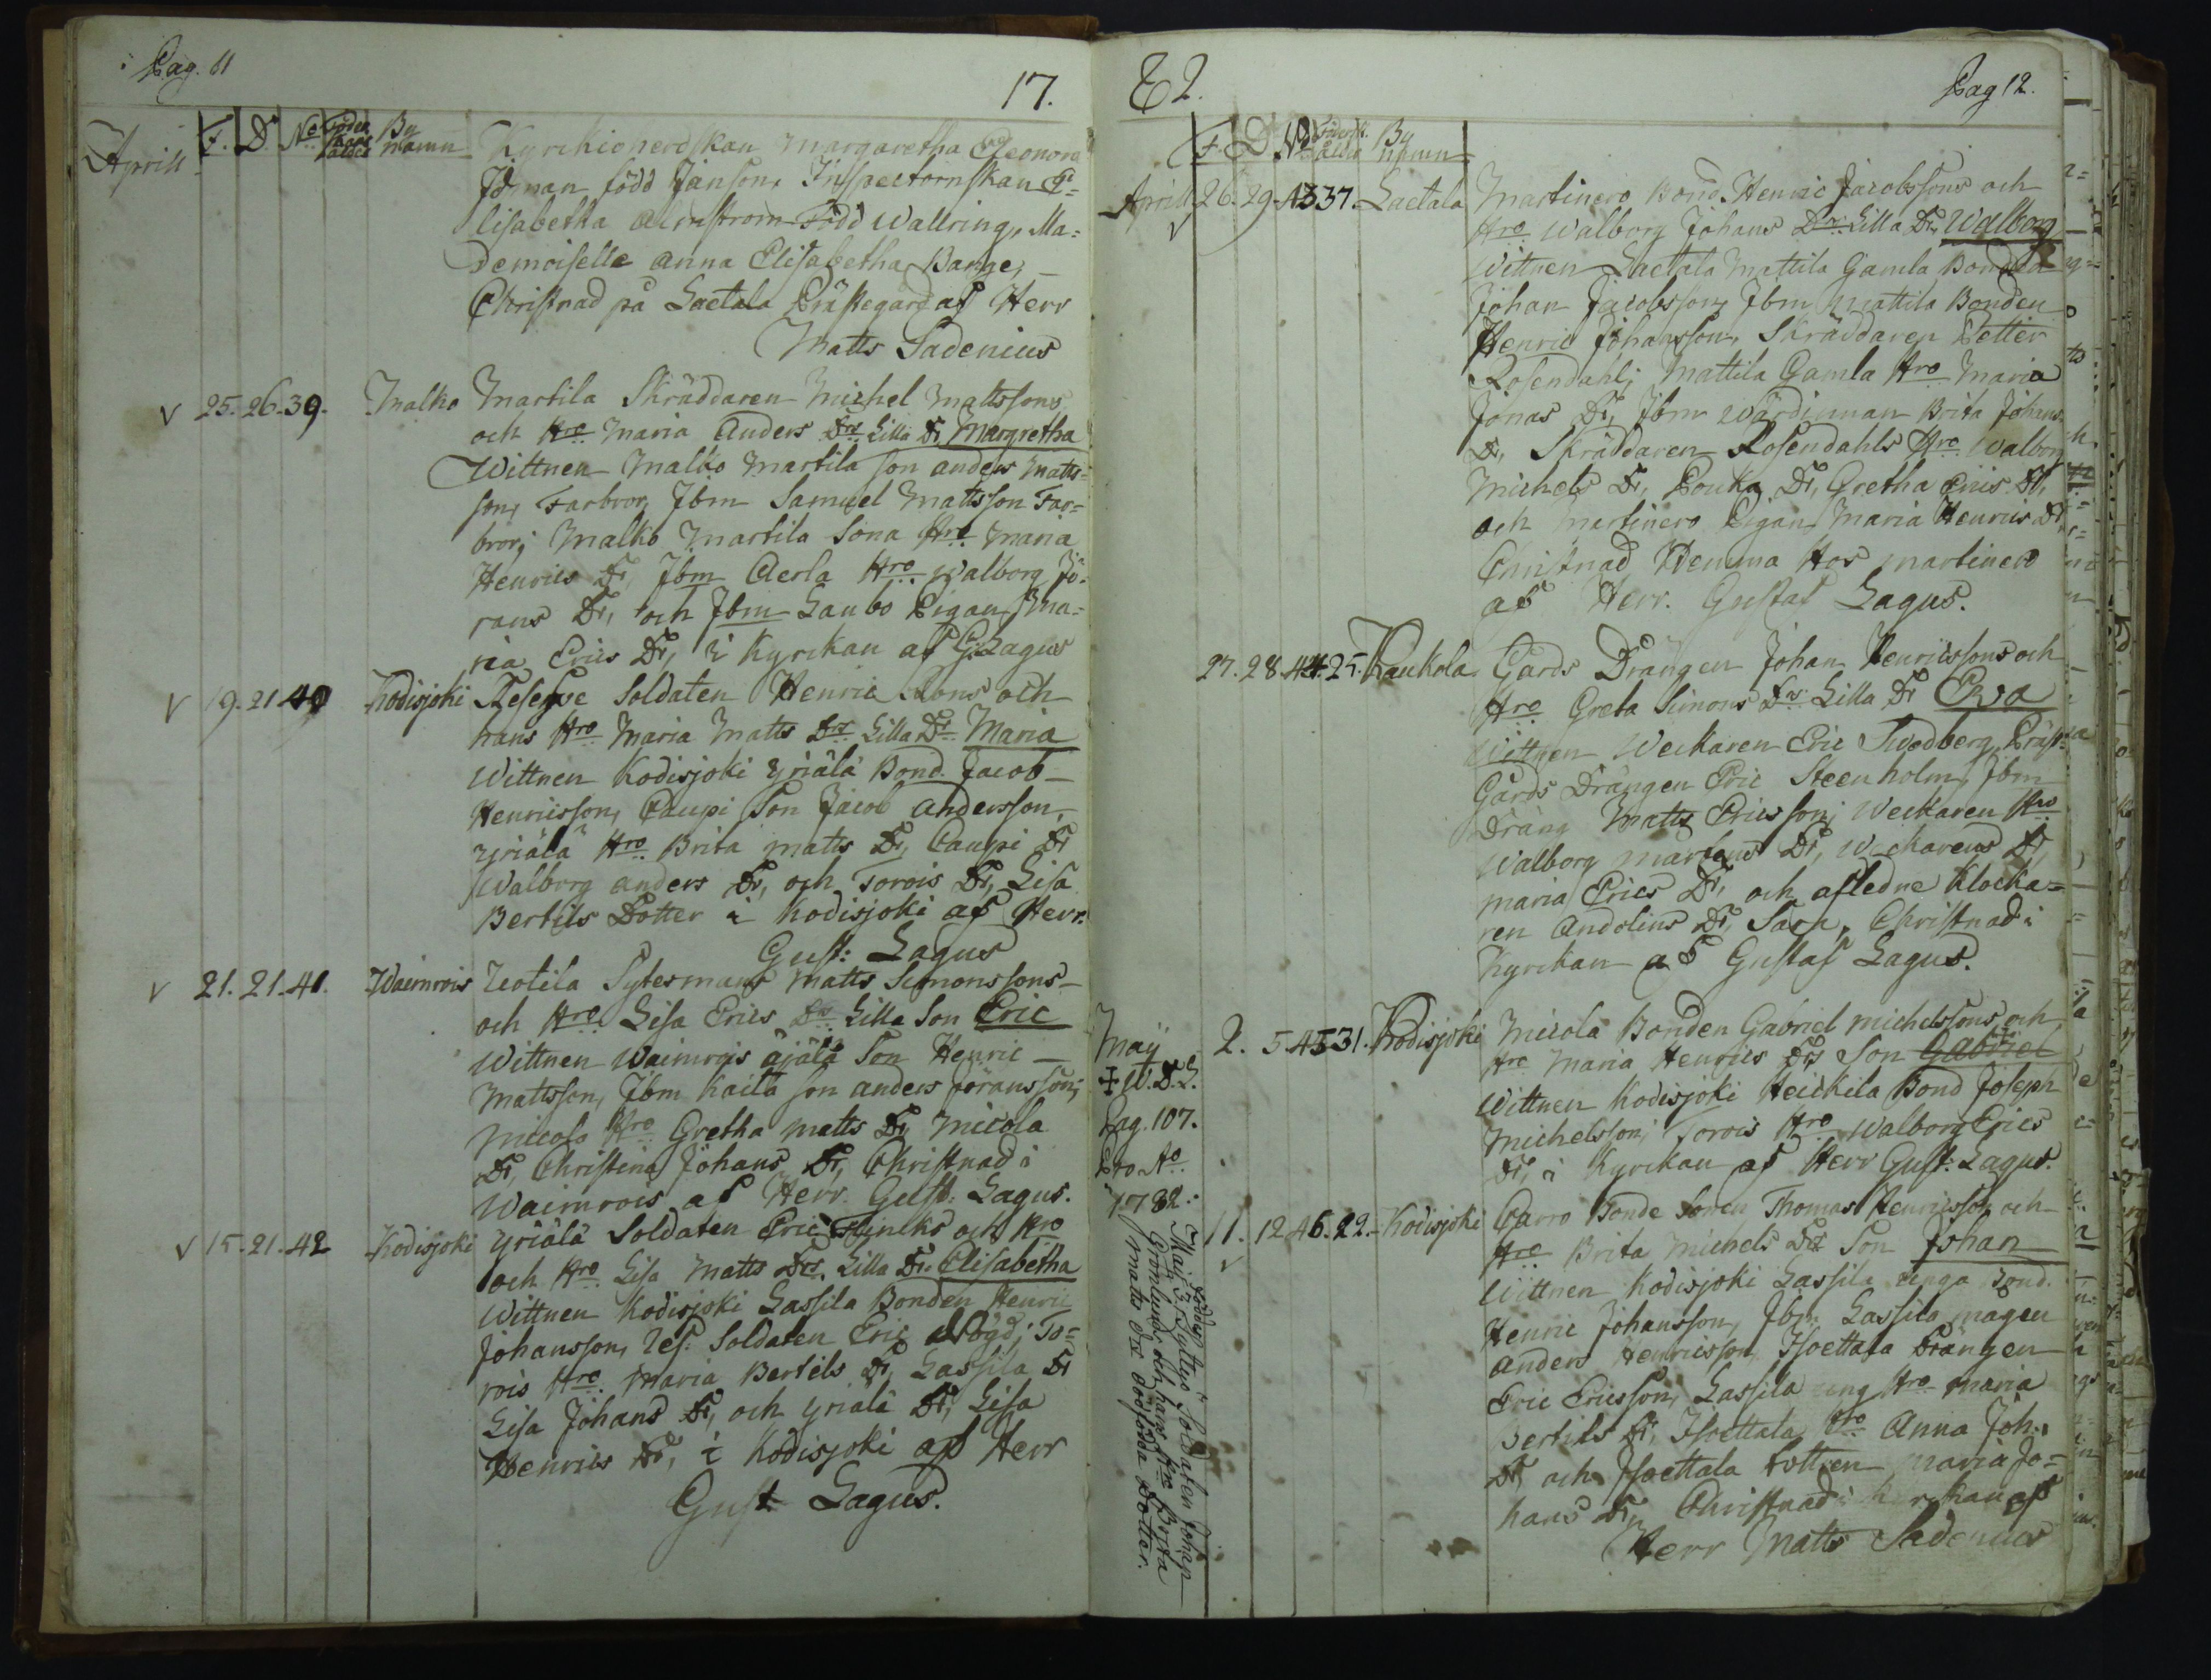 Pag. 11
17.
Aprill
F. D. No Föders kans ålder By namn
Kyrkioherdskan Margaretha Eleonora
Idman född Janson, Inspectorinskan E=
lisabetha född Wallring, Ma=
demoiselle Anna Elisabetha Bange,
Christnad på Laetala Prästegård af Herr
Matts Sadenius
25. 26. 39. Malko Martila Skräddaren Michel Mattssons
och Hro Maria Anders Drs Lilla Dr Margretha
Wittnen Malko Martila Son Anders Matts=
son, Farbror, Ibm Samuel Mattsson Far=
bror; Malko Martila Sona Hro Maria
Henrics Dr, Ibm Aerla Hro Walborg Jö=
rans Dr, och Ibm Laubo Pigan Ma=
ria Erics Dr, i Kyrckan af G: Lagus
19. 21. 40 Kodisjoki Reserve Soldaten Henric Rons och
hans Hro Maria Matts Drs Lilla Dr Maria
Wittnen Kodisjoki Yriälä Bond. Jacob
Henricsson, Caupi Son Jacob Andersson,
Yriälä Hro Brita Matts Dr, Caupi Dr
Walborg Anders Dr, och Torois Dr, Lisa
Bertils Dotter i Kodisjoki af Herr.
Gust: Lagus
21. 21. 41. Waimrois Uotila Sytesmans Matts Simonssons
och Hro Lisa Erics Drs Lilla Son Eric
Wittnen Waimrois Äjälä Son Henric
Mattsson, Ibm Kaita Son Anders Jöransson;
Micola Hro Gretha Matts Dr, Micola
Dr, Christina Johans Dr, Christnad i
Waimrois af Herr. Gust: Lagus.
15. 21. 42 Kodisjoki Yriälä Soldaten Eric Flincks och Hro
och Hro Lisa Matts Drs. Lilla Dr. Elisabetha
Wittnen Kodisjoki Lassila Bonden Henric
Johansson, Res: Soldaten Eric Högd; To=
rois Hro Maria Bertils Dr, Lassila Dr
Lisa Johans Dr, och Yriälä Dr, Lisa
Henrics Dr, i Kodisjoki af Herr
Gust Lagus.
Pag 12.
F. D No By namn
Aprill 26. 29. 43 37. Laetala Martinero Bond. Henric Jacobssons och
Hro Walborg Johans Drs Lilla Dr, Walborg
Wittnen Laetala Mattila Gamla Bonden
Johan Jacobsson, Ibm Mattila Bonden
Henric Johansson, Skräddaren Petter
Rosendahl; Mattila Gamla Hro Maria
Jonas Dr, Ibm Wärdinnan Brita Johans
Dr, Skräddaren Rosendahls Hro Walborg
Michels Dr, Pouka Dr, Gretha Erics Dr,
och Martinero Pigan Maria Henrics Dr
Christnad Hemma Hos Martinero
af Herr. Gustaf Lagus.
27. 28. 44. 25. Kaukola Gårds Drängen Johan Henricssons och
Hro Greta Simons Drs Lilla Dr Eva
Wittnen Weckaren Eric Swedberg, Präst=
Gårds Drängen Eric Steenholm, Ibm
Dräng Matts Ericsson; Weckaren Hro
Walborg Martens Dr, Weckarens Dr,
Maria Erics Dr, och afledne Klocka=
ren Andelins Dr, Sara, Christnad i
Kyrckan af Gustaf Lagus.
Maij 2. 5. 45 31. Kodisjoki Micola Bonden Gabriel Michelssons och
Hro Maria Henrics Drs Son Gabriel
Wittnen Kodisjoki Heickila Bond Joseph
Michelsson; Torois Hro Walborg Erics
Dr, i Kyrckan af Herr Gust: Lagus.
‡ W. D. L.
Pag. 107.
pro Ao
1782.
11. 12. 46. 22. Kodisjoki Carro Bonde Sonen Thomas Henricsson och
Hro Brita Michels Drs Son Johan
Wittnen Kodisjoki Lassila unga Bond.
Henric Johansson, Ibm Lassila mågen
Anders Henricsson, Isoettala Drängen
Eric Ericsson, Lassila ung Hro Maria
Bertils Dr, Isoettala Hro Anna Joh.
Dr och Isoettala Dottren Maria Jo=
hans Dr, Christnad i Kyrckan af
Herr Matts Sadenius
föddes
Maij 3. Soldaten Johan
Grönlunds och hans Hro Brita
Matts Drs dödfödda Dotter.